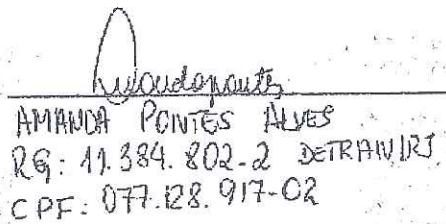 AMANDA PONTES ALVES
RG: 11.384.802-2 DETRAN/RJ
CPF: 077.128.917-02